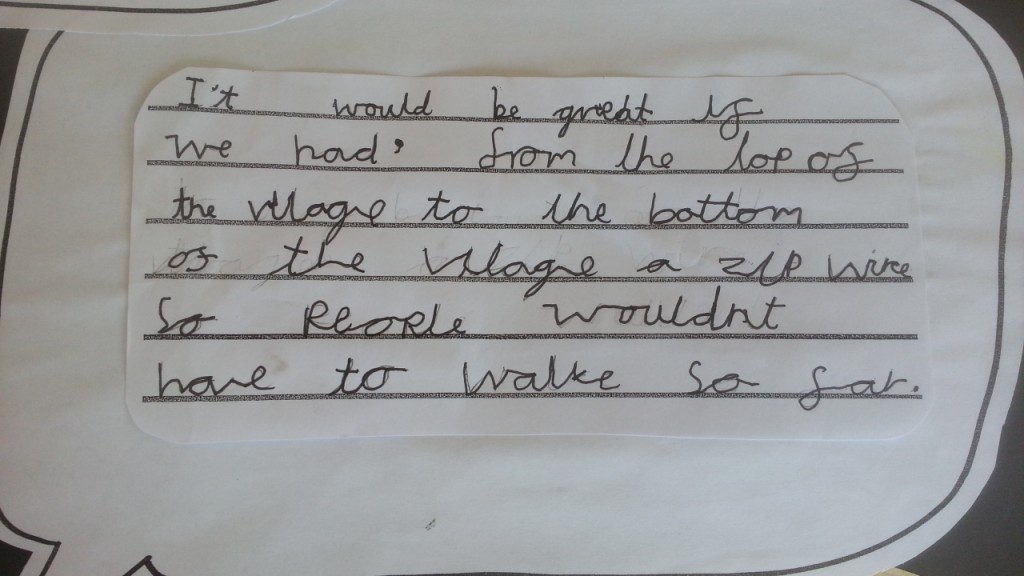 I't would be great if
we had, from the top of
the village to the bottom
of the village a zip wire
So People wouldn't
have to walke so far.